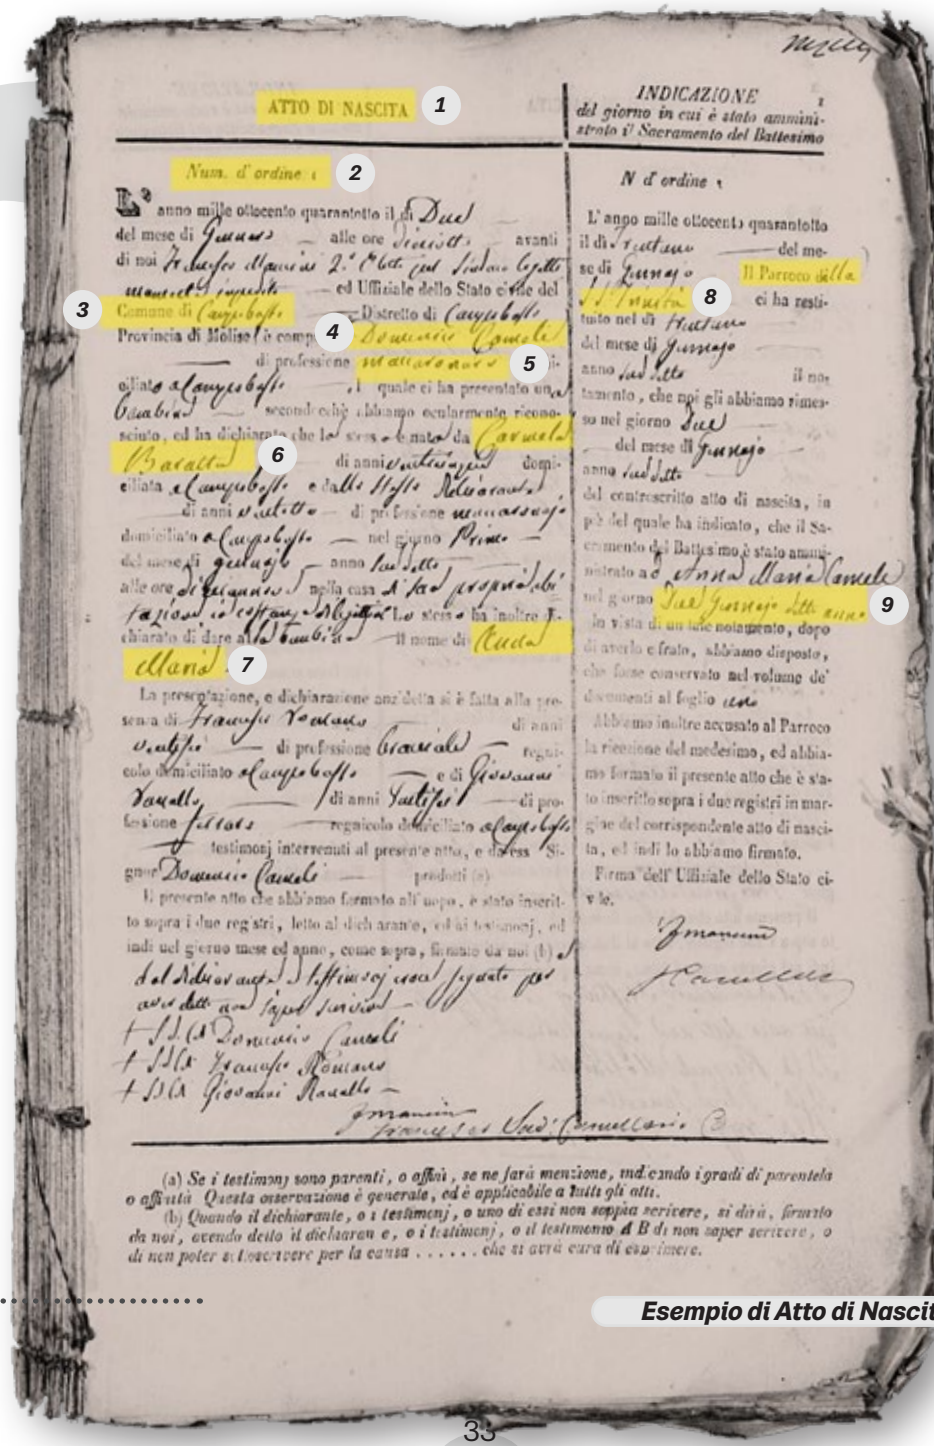 ATTO DI NASCITA
1
Num. d'ordine 1
2
L' anno mille ottocento quarantotto il di Due
del mese di Gennaro alle ore avanti
di noi Francesco Mancini 2.°
ed Uffiziale dello Stato civile del
3
Comune di Campobasso Distretto di Campobasso
Provincia di Molise, è comp
4
Domenico Camele
di professione maccaronaro
5
ciliato a Campobasso il quale ci ha presentato una
bambina secondochè abbiamo ocularmente ricono-
sciuto, ed ha dichiarato che lo stesso è nato da Carmela
Baratta
6
di anni venticinque domi-
ciliata a Campobasso e dallo stesso dichiarante
di anni ventotto di professione maccaronajo
domiciliato a Campobasso nel giorno Primo
del mese di gennajo anno suddetto
alle ore nella casa di sua propria abi
tazione Lo stesso ha inoltre di-
chiarato di dare alla bambina il nome di Anna
Maria
7
La presentazione, e dichiarazione anzidetta si è fatta alla pre-
senza di Francesco Romano di anni
di professione bracciale regni-
colo domiciliato a Campobasso e di Giovanni
Ranallo di anni di pro-
fessione ferraro regnicolo domiciliato a Campobasso
testimonj intervenuti al presente atto, e da esso Si-
gnor Domenico Camele prodotti (a)
Il presente atto che abbiamo formato all'uopo, è stato inserit-
to sopra i due registri, letto al dichiarante, ed ai testimonj, ed
indi nel giorno mese ed anno, come sopra, firmato da noi (b)
dal dichiarante e testimonj non segnato per
aver detto non saper scrivere
Domenico Camele
Francesco Romano
Giovanni Ranallo
FMancini
INDICAZIONE
del giorno in cui è stato ammini-
strato il Sacramento del Battesimo
1
N d'ordine 1
L'anno mille ottocento quarantotto
il dì Trentuno del me-
se di Gennajo Il Parroco della
SS. Trinità
8
ci ha resti-
tuito nel dì trentuno
del mese di Gennajo
anno suddetto il no-
tamento, che noi gli abbiamo rimes-
so nel giorno Due
del mese di Gennajo
anno suddetto
del controscritto atto di nascita, in
piè del quale ha indicato, che il Sa-
cramento del Battesimo è stato ammi-
nistrato ad Anna Maria Camele
nel giorno Due Gennajo detto anno
9
In vista di un tale notamento, dopo
di averlo cifrato, abbiamo disposto,
che fosse conservato nel volume de'
documenti al foglio uno
Abbiamo inoltre accusato al Parroco
la ricezione del medesimo, ed abbia-
mo formato il presente atto che è sta-
to inscritto sopra i due registri in mar-
gine del corrispondente atto di nasci-
ta, ed indi lo abbiamo firmato.
Firma dell' Uffiziale dello Stato ci-
vile.
FMancini
(a) Se i testimonj sono parenti, o affini, se ne farà menzione, indicando i gradi di parentela
o affinità Questa osservazione è generale, ed è applicabile a tutti gli atti.
(b) Quando il dichiarante, o i testimonj, o uno di essi non sappia scrivere, si dirà, firmato
da noi, avendo detto il dichiarante, o i testimonj, o il testimonio A B di non saper scrivere, o
di non poter sottoscrivere per la causa ...... che si avrà cura di esprimere.
Esempio di Atto di Nascit
33